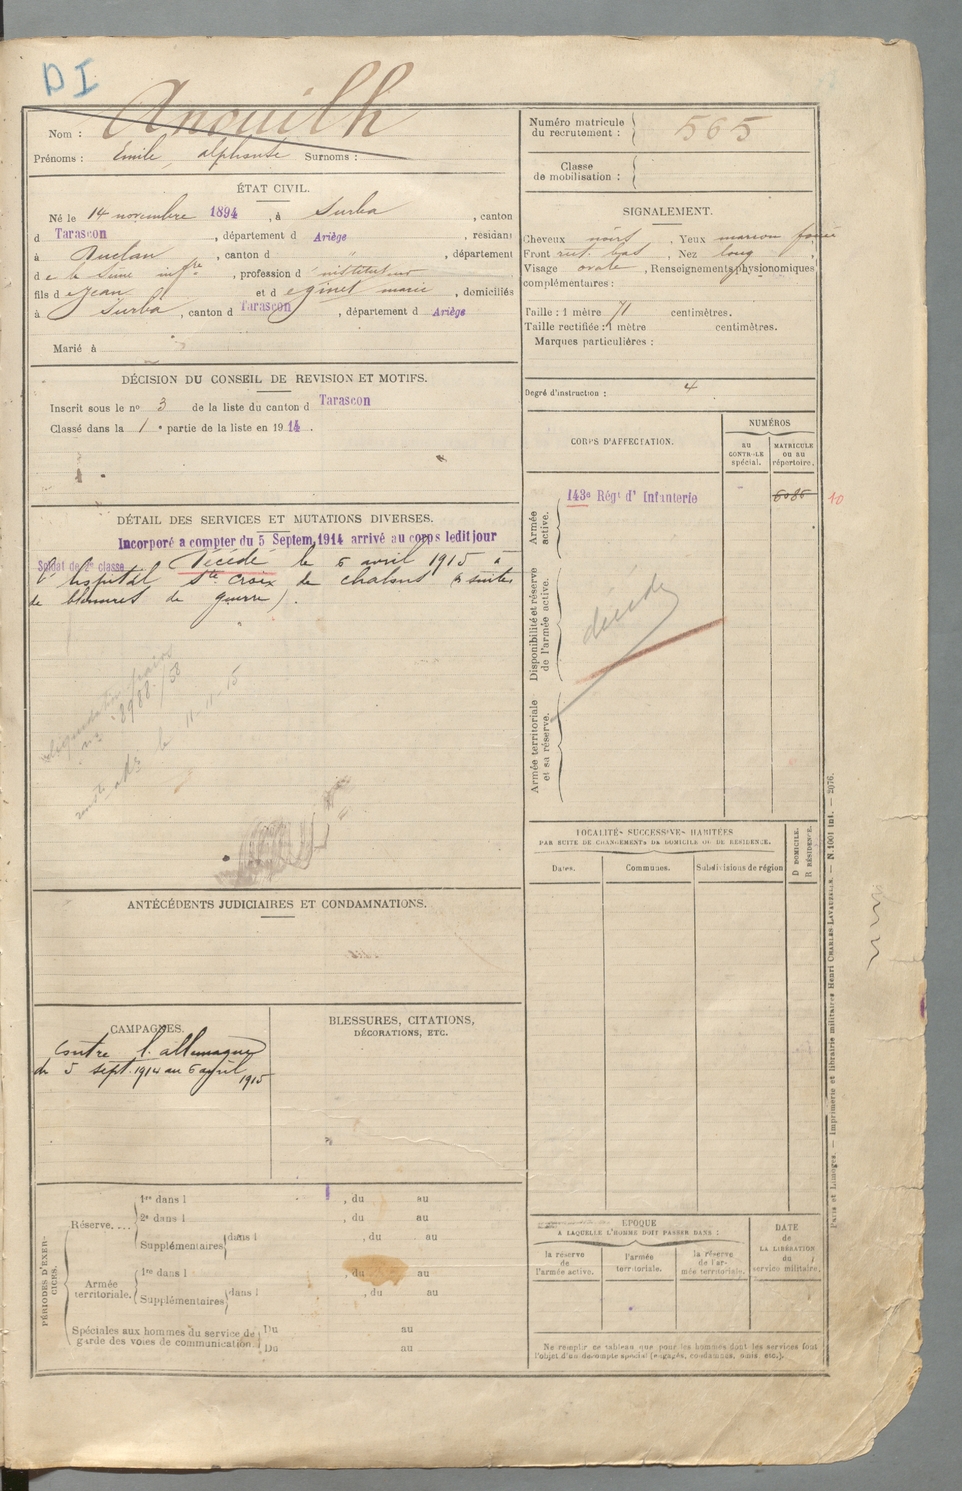 DI
Nom : Anouilh
Prénoms : Emile, alphonse Surnoms :
ÉTAT CIVIL.
Né le 14 novembre 1894, à Surba, canton
d Tarascon, département d Ariège, résidant
à Duclair, canton d , département
de la Seine infre, profession d instituteur
fils de Jean et d eginet marie, domiciliés
à Surba, canton d Tarascon, département d Ariège
Marié à
DÉCISION DU CONSEIL DE REVISION ET MOTIFS.
Inscrit sous le no 3 de la liste du canton d Tarascon
Classé dans la 1 e partie de la liste en 1914.
DÉTAIL DES SERVICES ET MUTATIONS DIVERSES.
Incorporé a compter du 5 Septem. 1914 arrivé au corps ledit jour
Soldat de 2e classe. Décédé le 6 avril 1915 à
l'hopital Ste croix de chalons (suites
de blessures de guerre).
n° 8988/58
le 11-11-15
ANTÉCÉDENTS JUDICIAIRES ET CONDAMNATIONS.
CAMPAGNES.
Contre l'allemagne
du 5 sept. 1914 au 6 avril
1915
BLESSURES, CITATIONS,
DÉCORATIONS, ETC.
PÉRIODES D'EXERCICES.
Réserve....
1re dans l , du au
2e dans l , du au
Supplémentaires dans l , du au
Armée territoriale.
1re dans l , du au
Supplémentaires dans l , du au
Spéciales aux hommes du service de garde des voies de communication.
Du au
Du au
Numéro matricule
du recrutement : 565
Classe
de mobilisation :
SIGNALEMENT.
Cheveux noirs, Yeux marron foncé
Front bas, Nez long,
Visage ovale, Renseignements physionomiques
complémentaires :
Taille : 1 mètre 71 centimètres.
Taille rectifiée : 1 mètre centimètres.
Marques particulières :
Degré d'instruction : 4
CORPS D'AFFECTATION.
NUMÉROS
au
CONTROLE
spécial.
MATRICULE
ou au
répertoire.
Armée
active.
143e Régt d' Infanterie
10
Disponibilité et réserve
de l'armée active.
décédé
Armée territoriale
et sa réserve.
LOCALITÉS SUCCESSIVES HABITÉES
PAR SUITE DE CHANGEMENTS DE DOMICILE OU DE RÉSIDENCE.
D DOMICILE.
R RÉSIDENCE.
Dates.
Communes.
Subdivisions de région
ÉPOQUE
A LAQUELLE L'HOMME DOIT PASSER DANS :
la réserve
de
l'armée active.
l'armée
territoriale.
la réserve
de l'ar-
mée territoriale.
DATE
de
LA LIBÉRATION
du
service militaire.
Ne remplir ce tableau que pour les hommes dont les services font
l'objet d'un décompte spécial (engagés, condamnés, omis, etc.).
Paris et Limoges. — Imprimerie et librairie militaires Henri CHARLES-LAVAUZELLE. — N. 1001 int. — 2076.